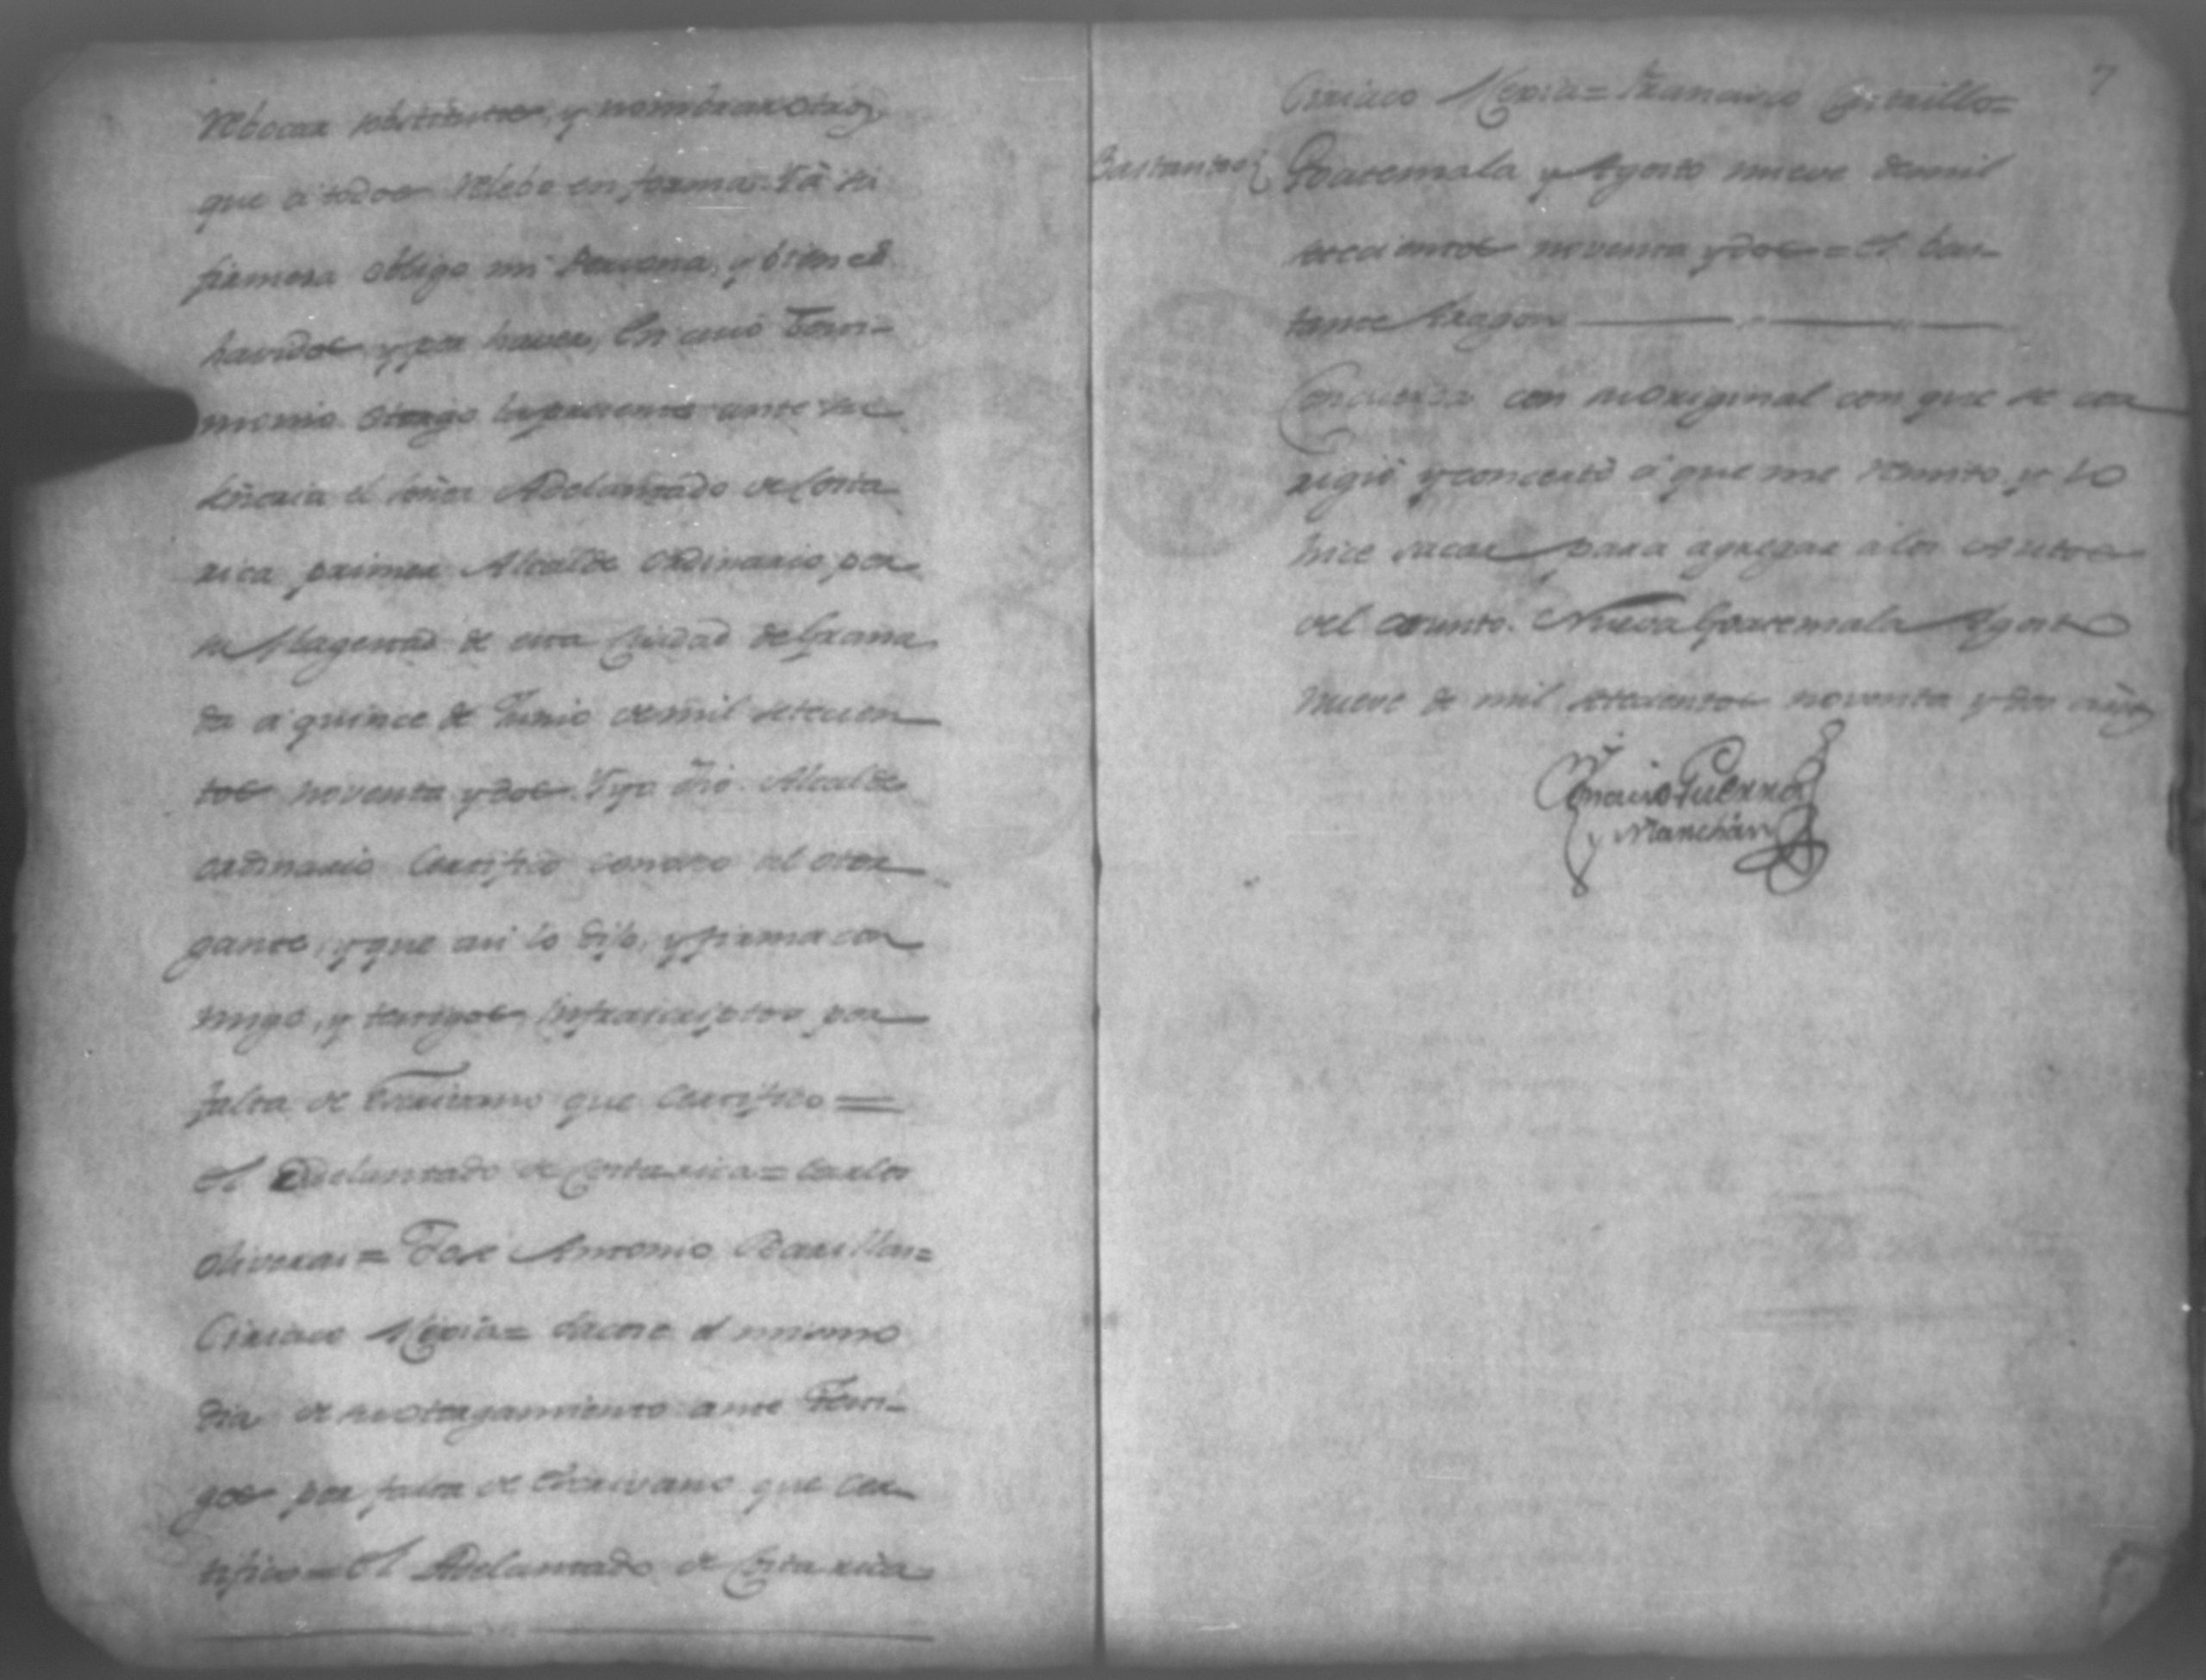 Rebocar sobstitutos, y nombrar otros,
que a todos relebo en forma. Y à su
firmeza obligo mi Persona, y bienes
havidos y por haver, En cuio Testi-
monio otorgo la presente ante su
señoria el señor Adelantado de Costa
rica primer Alcalde ordinario por
su Magestad de esta Ciudad de Grana
da a quince de Junio de mil setecien
tos noventa y dos. Y yo dho. Alcalde
ordinario Certifico conosco al otor
gante, y que asi lo dijo, y firma con
migo, y testigos infrascriptos por
falta de Escrivano que Certifico =
el Adelantado de Costa rica = Carlos
oliveras = Jose Antonio Barillas =
Ciriaco Mexia = Sacose el mismo
dia de su otorgamiento ante Testi-
gos por falta de escrivano que Cer
tifico = el Adelantado de Costa rica
7
Ciriaco Mexia = Francisco Castrillo =
Bastanteo
Goatemala y Agosto nueve de mil
setecientos noventa y dos = el bas-
tante Aragon
Concuerda con su original con que se cor
rigió y concertó á que me remito, y lo
hice sacar para agregar a los Autos
del asunto. Nueva Goatemala Agosto
nueve de mil setecientos noventa y dos años
Ignacio Guerra
y Marchán